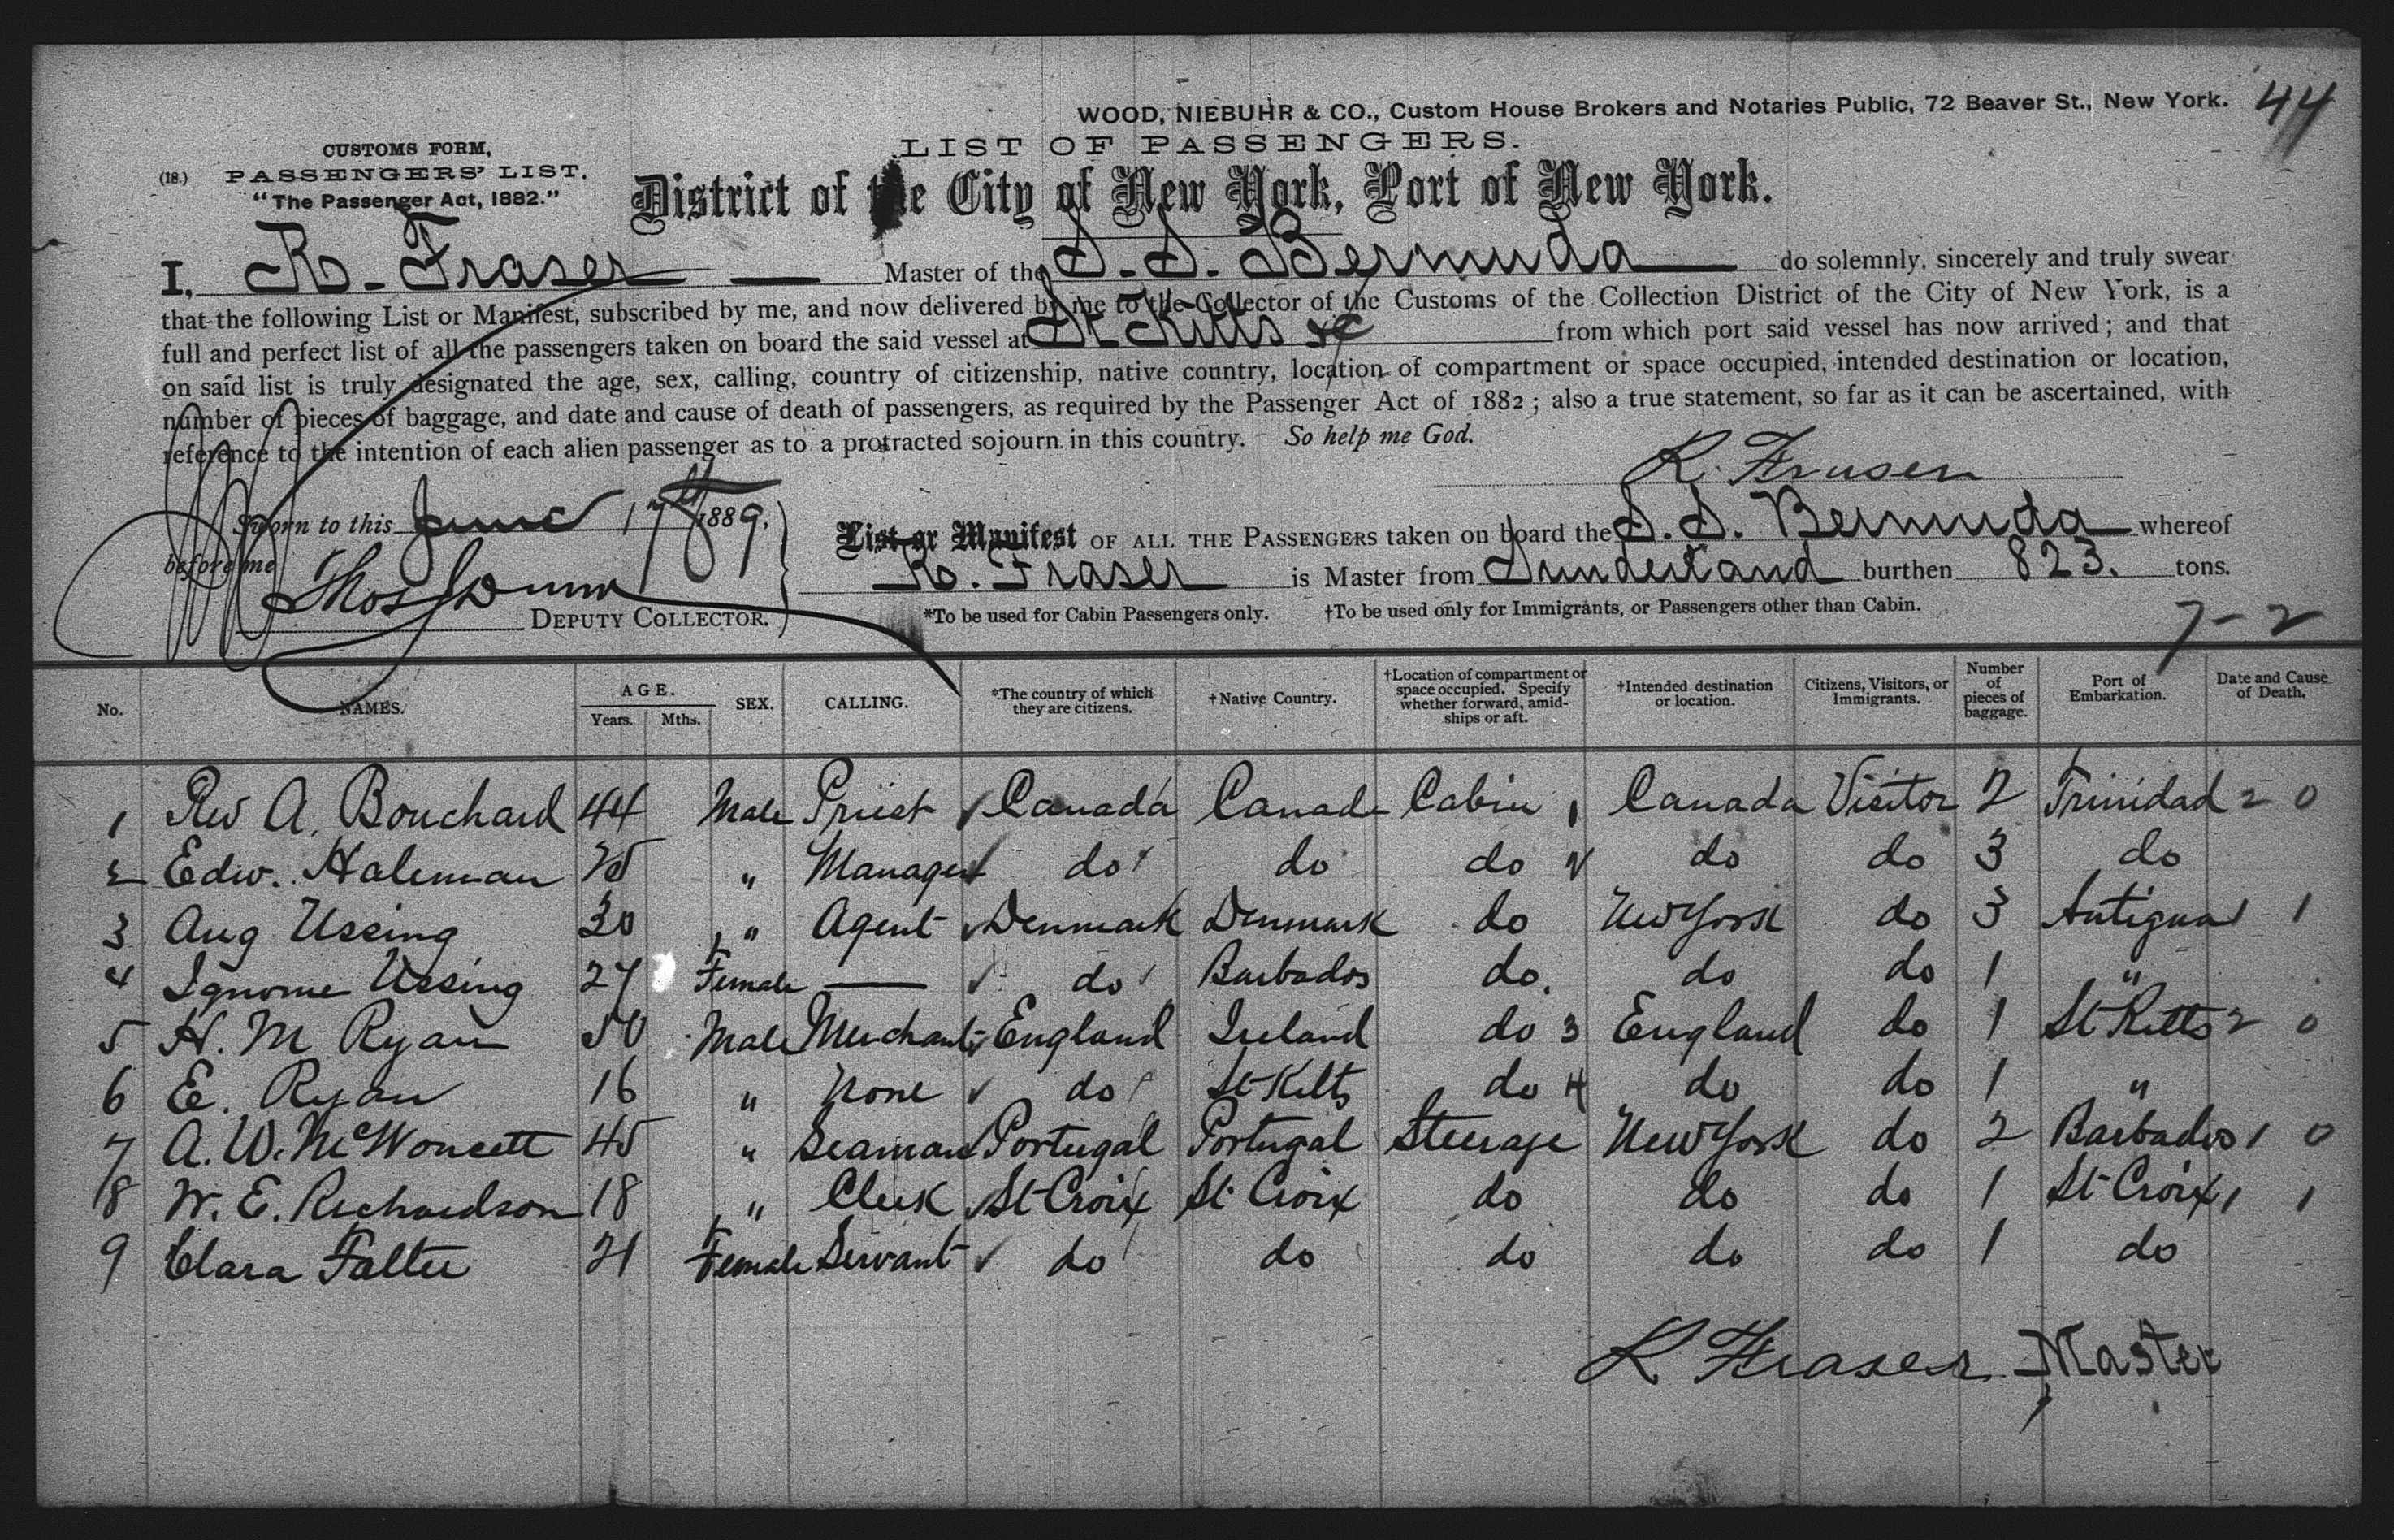 WOOD, NIEBUHR & CO., Custom House Brokers and Notaries Public, 72 Beaver St., New York.
44
LIST OF PASSENGERS.
CUSTOMS FORM,
(18.) PASSENGERS' LIST.
"The Passenger Act, 1882."
District of the City of New York, Port of New York.
I, R. Fraser Master of the S.S. Bermuda do solemnly, sincerely and truly swear
that the following List or Manifest, subscribed by me, and now delivered by me to the Collector of the Customs of the Collection District of the City of New York, is a
full and perfect list of all the passengers taken on board the said vessel at St Kitts &c from which port said vessel has now arrived; and that
on said list is truly designated the age, sex, calling, country of citizenship, native country, location of compartment or space occupied, intended destination or location,
number of pieces of baggage, and date and cause of death of passengers, as required by the Passenger Act of 1882; also a true statement, so far as it can be ascertained, with
reference to the intention of each alien passenger as to a protracted sojourn in this country. So help me God.
R. Fraser
Sworn to this June 17th 1889,
before me
Thos Dunn
DEPUTY COLLECTOR.
List or Manifest OF ALL THE PASSENGERS taken on board the S.S. Bermuda whereof
R. Fraser is Master from Sunderland burthen 823. tons.
*To be used for Cabin Passengers only. †To be used only for Immigrants, or Passengers other than Cabin.
7-2
No. NAMES. AGE. Years. Mths. SEX. CALLING. *The country of which they are citizens. †Native Country. †Location of compartment or space occupied. Specify whether forward, amidships or aft. †Intended destination or location. Citizens, Visitors, or Immigrants. Number of pieces of baggage. Port of Embarkation. Date and Cause of Death.
1 Rev A. Bouchard 44 Male Priest Canada Canada Cabin 1 Canada Visitor 2 Trinidad 2 0
2 Edw. Haleman 25 " Manager do do do 2 do do 3 do
3 Aug Ussing 30 " Agent Denmark Denmark do New York do 3 Antigua 1 1
4 Ussing 27 Female — do Barbados do. do do 1 "
5 H. M Ryan 50 Male Merchant England Ireland do 3 England do 1 St Kitts 2 0
6 E. Ryan 16 " None do St Kitts do 4 do do 1 "
7 A. W. 45 " Seaman Portugal Portugal Steerage New York do 2 Barbados 1 0
8 W. E. Richardson 18 " Clerk St Croix St Croix do do do 1 St Croix 1 1
9 Clara 21 Female Servant do do do do do 1 do
R Fraser Master